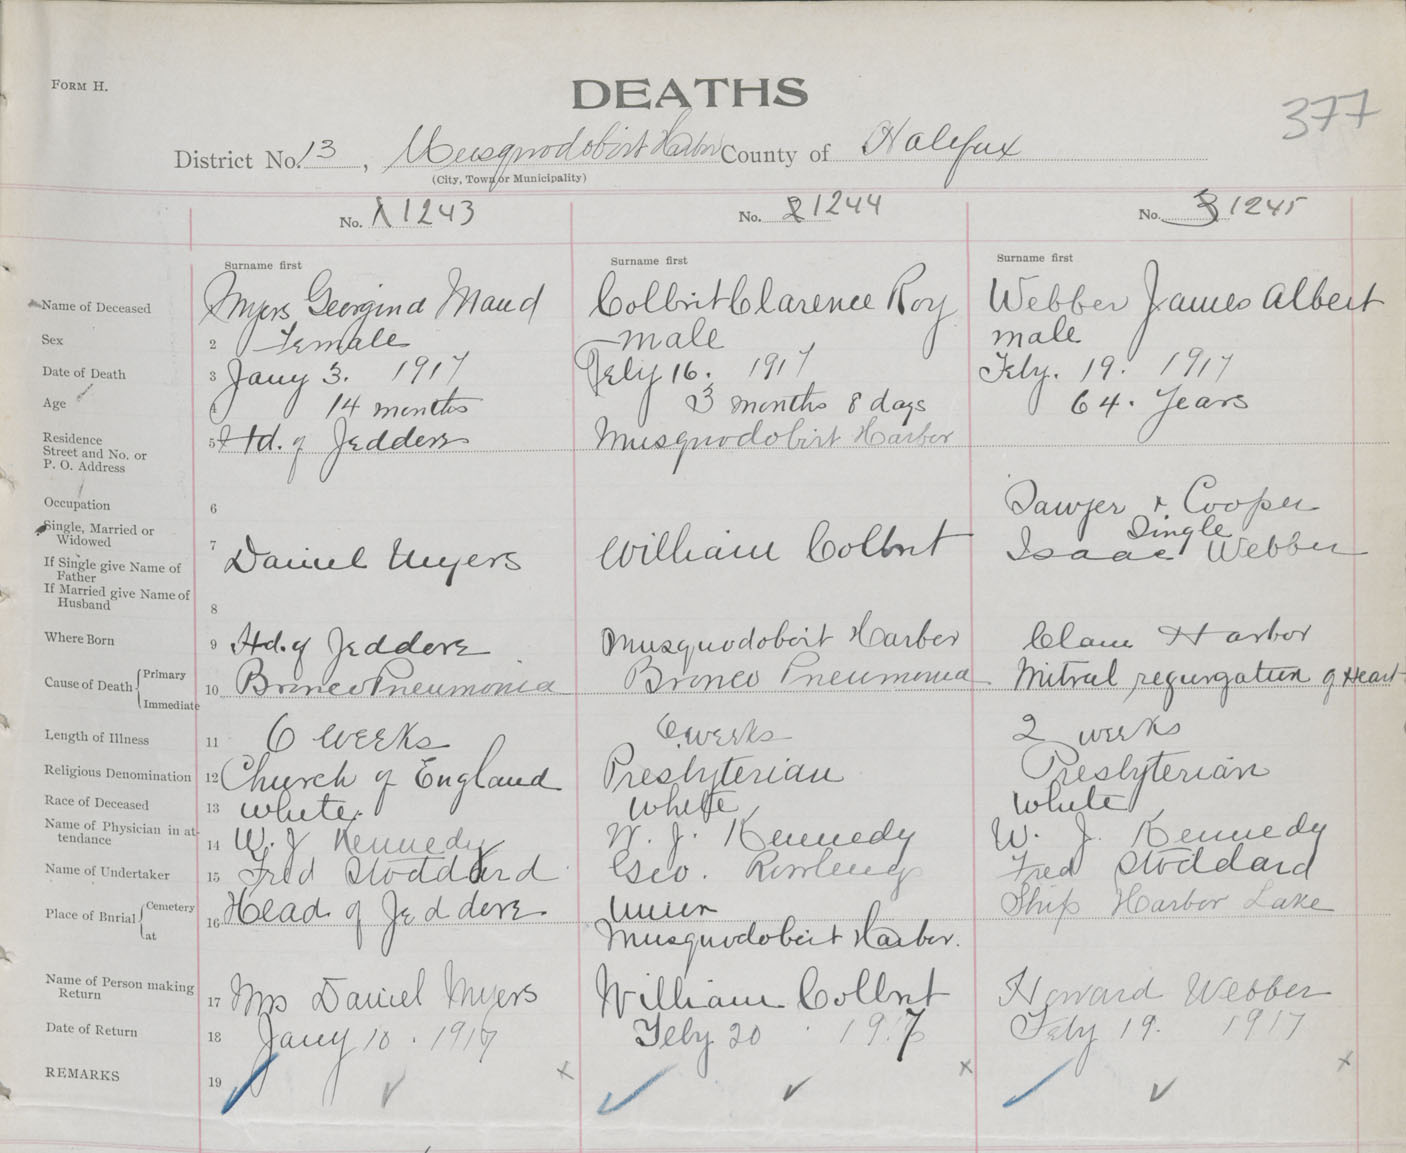 FORM H.
DEATHS
377
District No. 13, Musquodobirt Harbor County of Halifax
(City, Town or Municipality)
No. 1 1243 No. 2 1244 No. 3 1245
Surname first Surname first Surname first
Name of Deceased Myers Georgind Maud Colbrit Clarence Roy Webber James Albert
Sex 2 Female male male
Date of Death 3 Jany 3. 1917 Feby 16. 1917 Feby. 19. 1917
Age 4 14 months 3 months 8 days 64. Years
Residence
Street and No. or
P. O. Address
5 Hd. of Jeddore Musquodobirt Harbor
Occupation 6 Sawyer & Cooper
Single, Married or
Widowed
7 Single
If Single give Name of
Father
Daniel Myers William Colbrit Isaac Webber
If Married give Name of
Husband
8
Where Born 9 Hd. of Jeddore Musquodoboit Harber Clam Harbor
Cause of Death { Primary
Immediate
10 Bronco Pneumonia Bronco Pneumonia Mitral regurgation of Heart
Length of Illness 11 6 weeks 6 weeks 2 weeks
Religious Denomination 12 Church of England Presbyterian Presbyterian
Race of Deceased 13 white. white white
Name of Physician in at-
tendance
14 W. J Kennedy W. J. Kennedy W. J. Kennedy
Name of Undertaker 15 Fred Stoddard Geo. Rowling Fred Stoddard
Place of Burial { Cemetery
at
16 Head of Jeddore Union Ship Harbor Lake
Musquodoboit Harbor.
Name of Person making
Return
17 Mrs Daniel Myers William Colbrit Howard Webber
Date of Return 18 Jany 10. 1917 Feby 20 1917 Feby 19. 1917
REMARKS 19